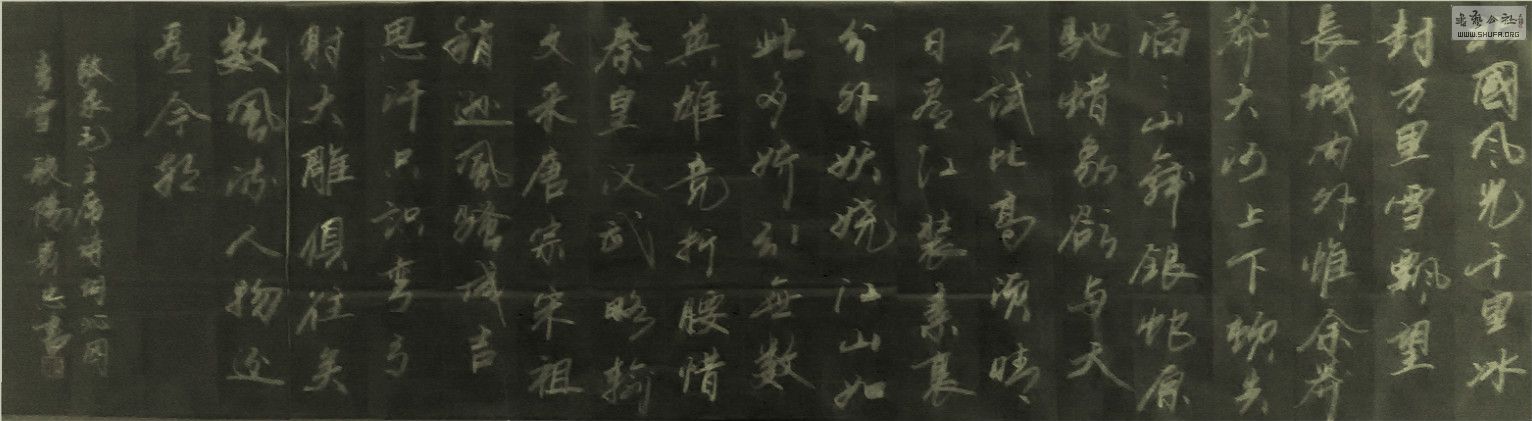 北國风光千里冰
封万里雪飘望
長城内外惟余莽
莽大河上下顿失
滔〻山舞銀蛇原
馳蜡象欲与天
公試比高须晴
日看红装素裹
分外妖娆江山如
此多娇引無数
英雄竞折腰惜
秦皇汉武略輸
文采唐宗宋祖
稍逊風骚成吉
思汗只識弯弓
射大雕俱往矣
数風流人物还
看今朝
敬录毛主席詩词沁園
春雪
书艺公社
WWW.SHUFA.ORG